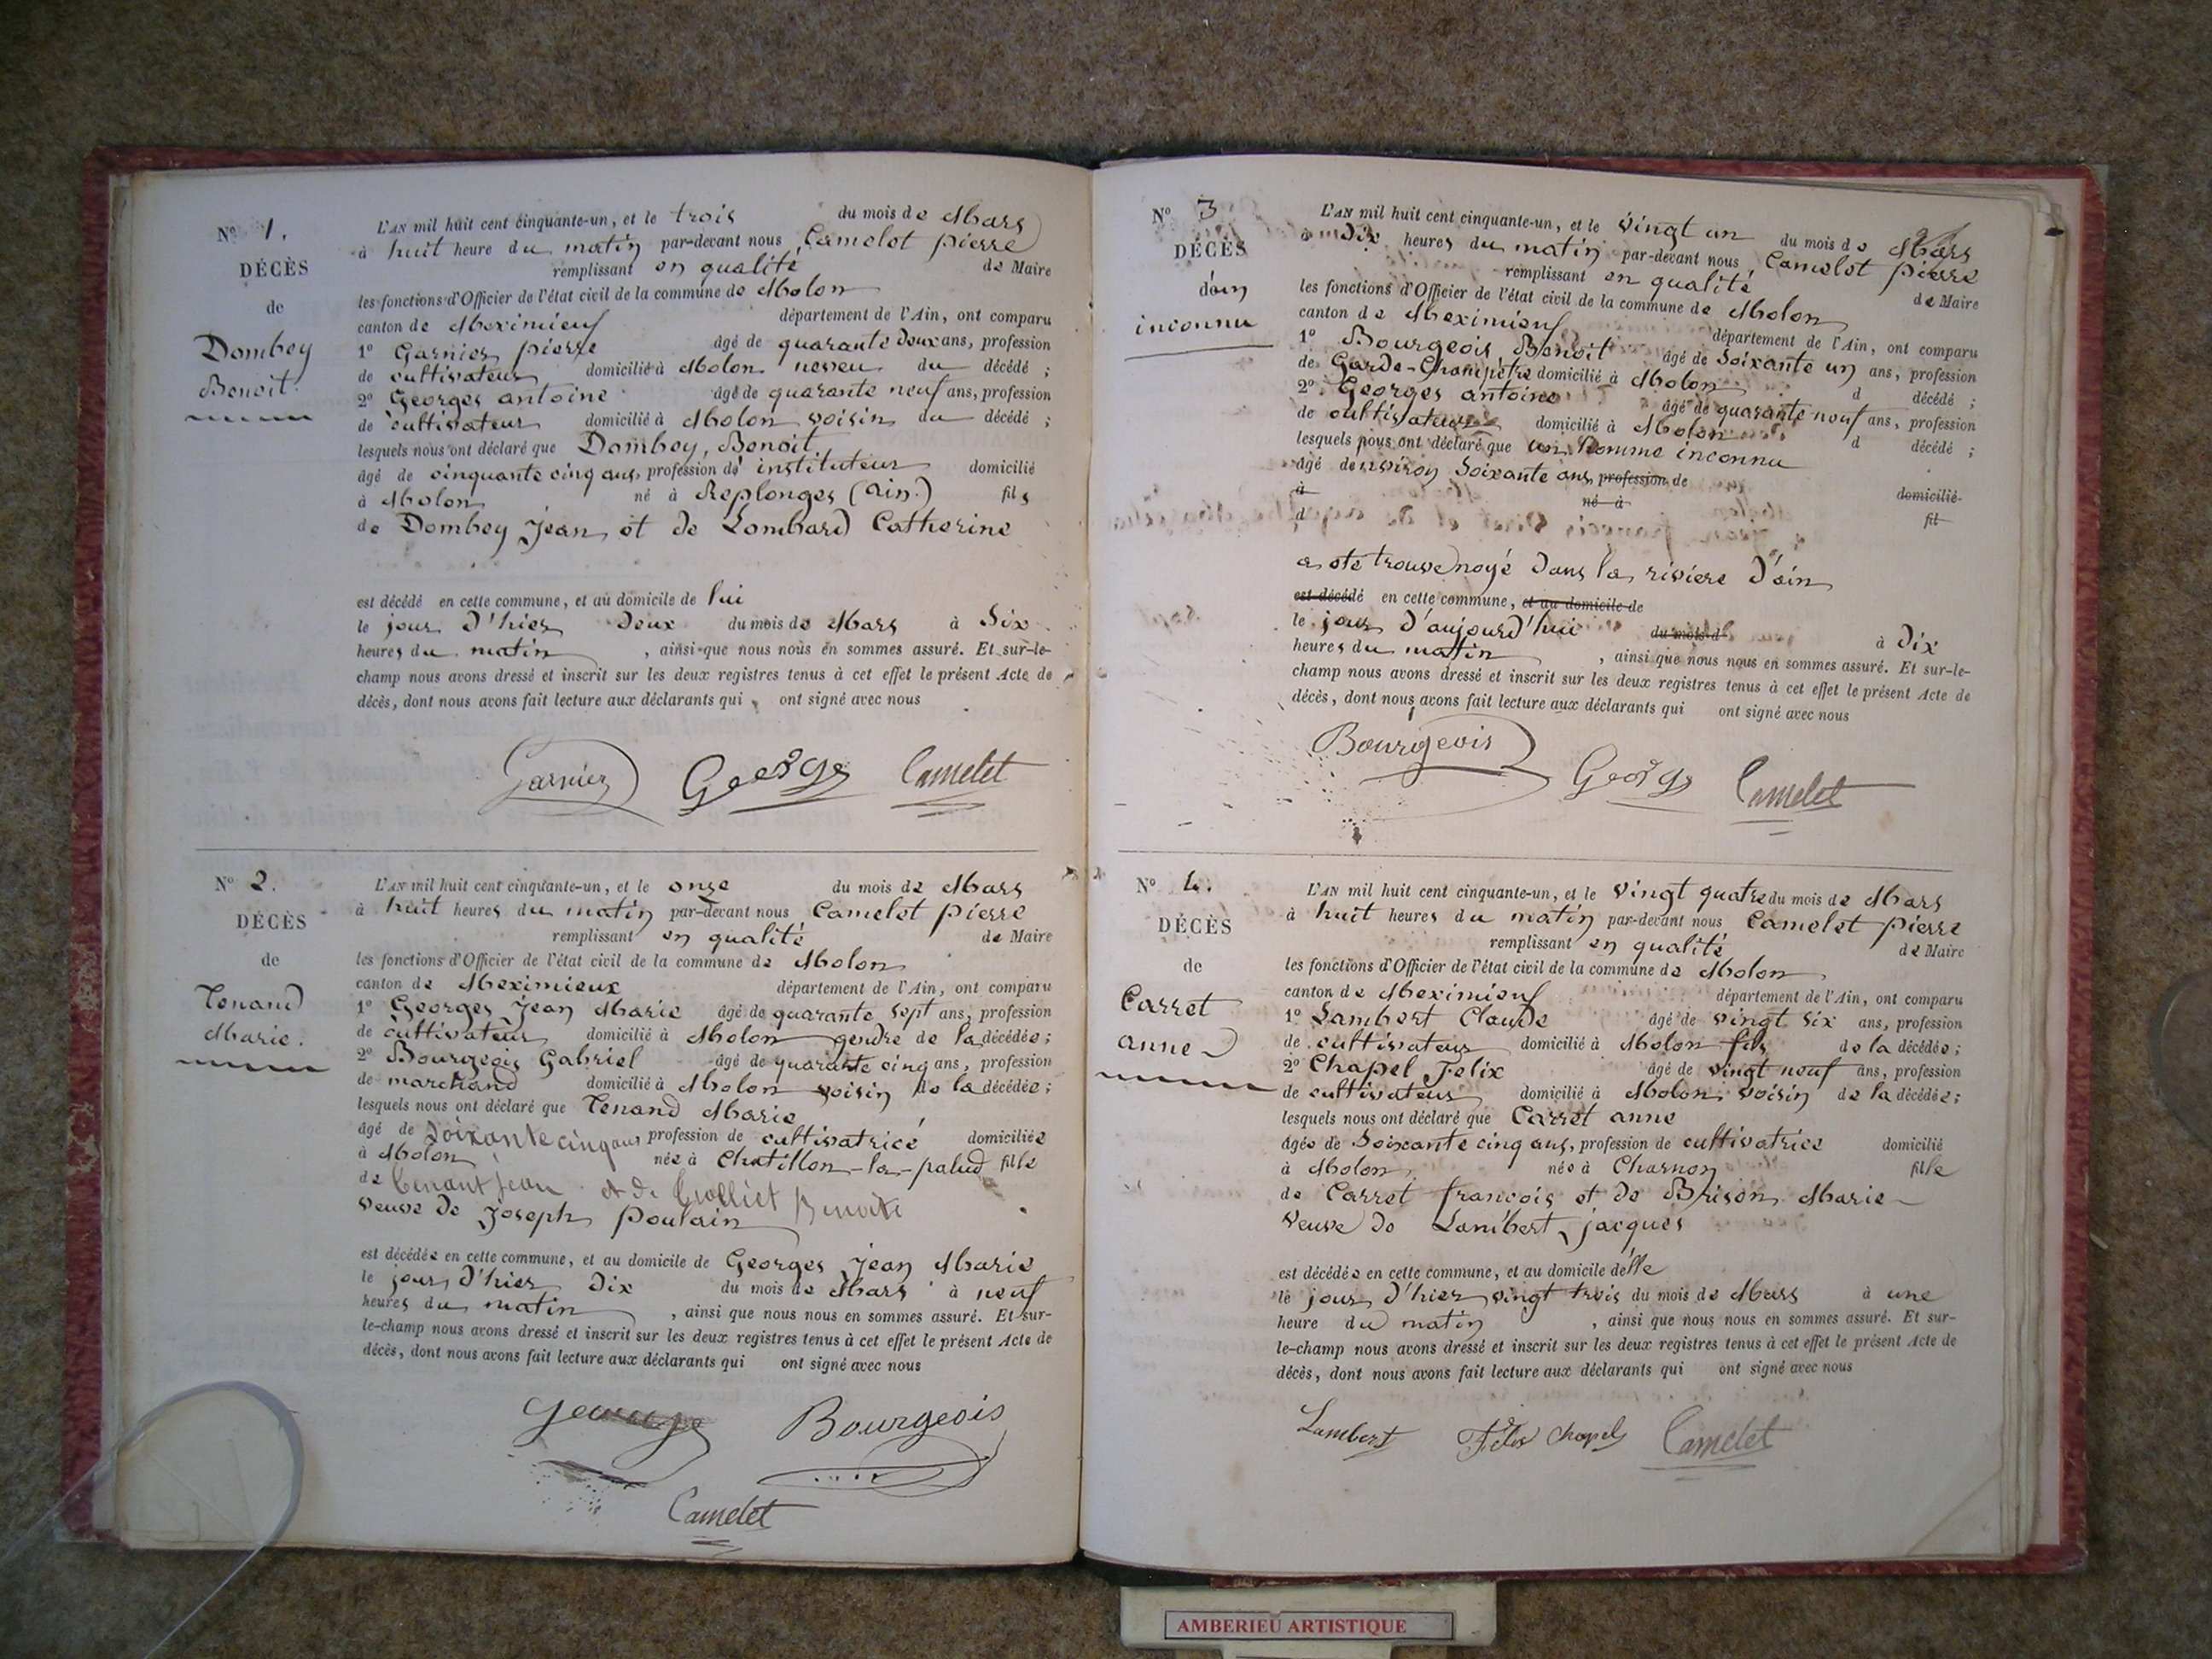 N° 1.
DÉCÈS
de
Dombey
Benoit
L'AN mil huit cent cinquante-un, et le trois du mois de Mars
à huit heure du matin par-devant nous Camelet pierre
remplissant en qualité de Maire
les fonctions d'Officier de l'état civil de la commune de Molon
canton de Meximieux département de l'Ain, ont comparu
1° Garnier pierre âgé de quarante deux ans, profession
de cultivateur domicilié à Molon neveu du décédé ;
2° Georges antoine âgé de quarante neuf ans, profession
de cultivateur domicilié à Molon voisin du décédé ;
lesquels nous ont déclaré que Dombey, Benoit
âgé de cinquante cinq ans, profession de instituteur domicilié
à Molon né à Replonges (ain.) fils
de Dombey Jean et de Lombard Catherine
est décédé en cette commune, et au domicile de lui
le jour d'hier deux du mois de Mars à Six
heures du matin , ainsi que nous nous en sommes assuré. Et sur-le-
champ nous avons dressé et inscrit sur les deux registres tenus à cet effet le présent Acte de
décès, dont nous avons fait lecture aux déclarants qui ont signé avec nous
Garnier George Camelet
N° 2.
DÉCÈS
de
Tenand
Marie.
L'AN mil huit cent cinquante-un, et le onze du mois de Mars
à huit heures du matin par-devant nous Camelet pierre
remplissant en qualité de Maire
les fonctions d'Officier de l'état civil de la commune de Molon
canton de Meximieux département de l'Ain, ont comparu
1° Georges Jean Marie âgé de quarante sept ans, profession
de cultivateur domicilié à Molon gendre de la décédée ;
2° Bourgeois Gabriel âgé de quarante cinq ans, profession
de marchand domicilié à Molon voisin de la décédée ;
lesquels nous ont déclaré que Tenand Marie
âgé de soixante cinq ans profession de cultivatrice domiciliée
à Molon née à Chatillon-la-palud fille
de Tenant jean et de Benoite
veuve de Joseph poulain
est décédée en cette commune, et au domicile de Georges Jean Marie
le jour d'hier dix du mois de Mars à neuf
heures du matin , ainsi que nous nous en sommes assuré. Et sur-
le-champ nous avons dressé et inscrit sur les deux registres tenus à cet effet le présent Acte de
décès, dont nous avons fait lecture aux déclarants qui ont signé avec nous
George Bourgeois
Camelet
N° 3
DÉCÈS
d'un
inconnu
L'AN mil huit cent cinquante-un, et le vingt un du mois de Mars
à dix heures du matin par-devant nous Camelet pierre
remplissant en qualité de Maire
les fonctions d'Officier de l'état civil de la commune de Molon
canton de Meximieux département de l'Ain, ont comparu
1° Bourgeois Benoit âgé de Soixante un ans, profession
de Garde-Champetre domicilié à Molon d décédé ;
2° Georges antoine âgé de quarante neuf ans, profession
de cultivateur domicilié à Molon d décédé ;
lesquels nous ont déclaré que un homme inconnu
âgé denviron Soixante ans profession de
à né à domicilié
d fil
a été trouvé noyé dans la riviere d'ain
est décédé en cette commune, et au domicile de
le jour d'aujourd'hui du mois d à dix
heures du matin , ainsi que nous nous en sommes assuré. Et sur-le-
champ nous avons dressé et inscrit sur les deux registres tenus à cet effet le présent Acte de
décès, dont nous avons fait lecture aux déclarants qui ont signé avec nous
Bourgeois George Camelet
N° 4.
DÉCÈS
de
Carret
anne
L'AN mil huit cent cinquante-un, et le vingt quatre du mois de Mars
à huit heures du matin par-devant nous Camelet pierre
remplissant en qualité de Maire
les fonctions d'Officier de l'état civil de la commune de Molon
canton de Meximieux département de l'Ain, ont comparu
1° Lambert Claude âgé de vingt six ans, profession
de cultivateur domicilié à Molon fils de la décédée ;
2° Chapel Felix âgé de vingt neuf ans, profession
de cultivateur domicilié à Molon voisin de la décédée ;
lesquels nous ont déclaré que Carret anne
âgée de Soixante cinq ans, profession de cultivatrice domicilié
à Molon née à Charnoz fille
de Carret françois et de Brison Marie
veuve de Lambert jacques
est décédée en cette commune, et au domicile delle
le jour d'hier vingt trois du mois de Mars à une
heure du matin , ainsi que nous nous en sommes assuré. Et sur-
le-champ nous avons dressé et inscrit sur les deux registres tenus à cet effet le présent Acte de
décès, dont nous avons fait lecture aux déclarants qui ont signé avec nous
Lambert Félix Chapel Camelet
AMBERIEU ARTISTIQUE